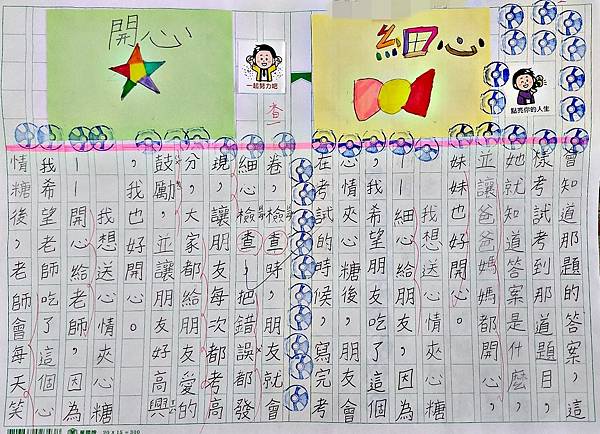 細心
點亮你的人生
會知道那題的答案，這
樣考試考到那道題目，
她就知道答案是什麼，
並讓爸爸媽媽都開心，
妹妹也好開心。
我想送心情夾心糖
—細心給朋友，因為
，我希望朋友吃了這個
心情夾心糖後，朋友
在考試的時候，寫完考
開心
一起努力吧
查
卷，檢查時，朋友就會
細心檢查，把錯誤都發
現，讓朋友每次都考高
分，大家都給朋友愛的
鼓勵，並讓朋友好高興
，我也好開心。
我想送心情夾心糖
——開心給老師，因為
我希望老師吃了這個心
情糖後，老師會每天笑
20 X 15 = 300